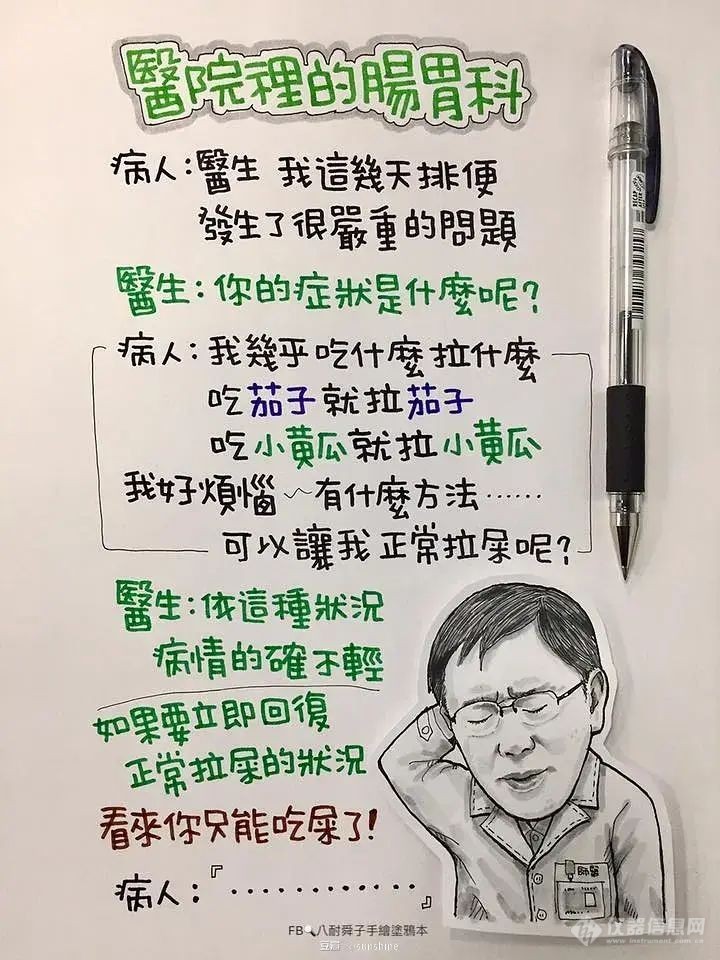 醫院裡的腸胃科
病人:醫生 我這幾天排便
發生了很嚴重的問題
醫生:你的症狀是什麼呢?
病人:我幾乎吃什麼拉什麼
吃茄子就拉茄子
吃小黃瓜就拉小黃瓜
我好煩惱~有什麼方法……
可以讓我正常拉屎呢?
醫生:依這種狀況
病情的確不輕
如果要立即回復
正常拉屎的狀況
看來你只能吃屎了!
病人:『⋯⋯⋯⋯』
醫師
FB 八耐舜子手繪塗鴉本
豆瓣 sunshine
仪器信息网